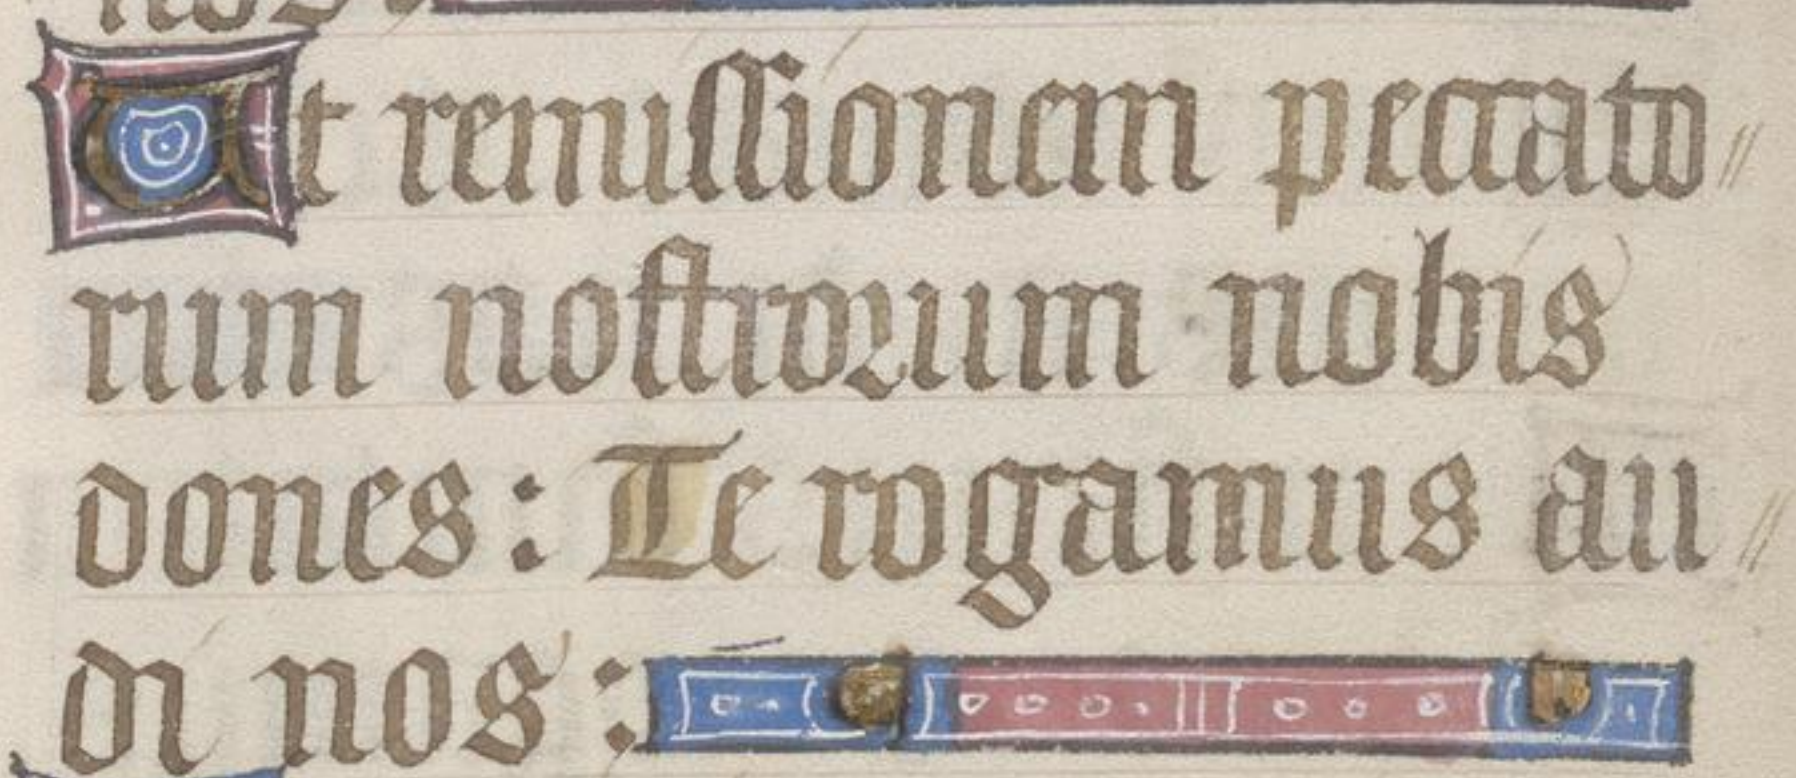 nos:
Ut remissionem peccato//
rum nostrorum nobis
dones: Te rogamus au//
di nos: